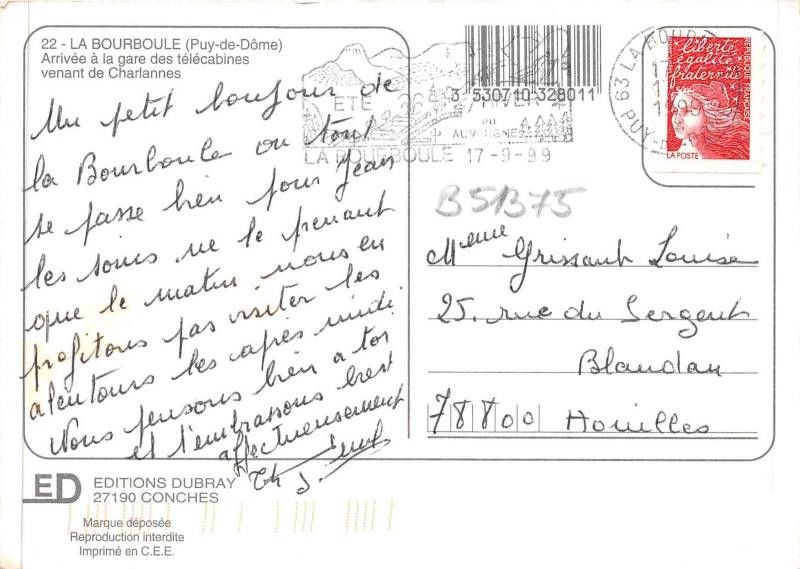 22 - LA BOURBOULE (Puy-de-Dôme)
Arrivée à la gare des télécabines
venant de Charlannes
Un petit bonjour de
la Bourboule ou tout
se passe bien pour Jean
les soins ne le prenant
que le matin nous en
profitons pas visiter les
alentours les après midi.
Nous pensons bien a toi
et t'embrassons bien
affectueusement
ED
EDITIONS DUBRAY
27190 CONCHES
Marque déposée
Reproduction interdite
Imprimé en C.E.E.
3 330710 328011
ETE
en
AUVERGNE
LA BOURBOULE 17-9-99
63 LA BOURBOULE
PUY-DE-DOME
liberté
égalité
fraternité
REPUBLIQUE FRANÇAISE
LA POSTE
B51B75
Meme Grissault Louise
25. rue du Sergent
Blandan
78800 Houilles